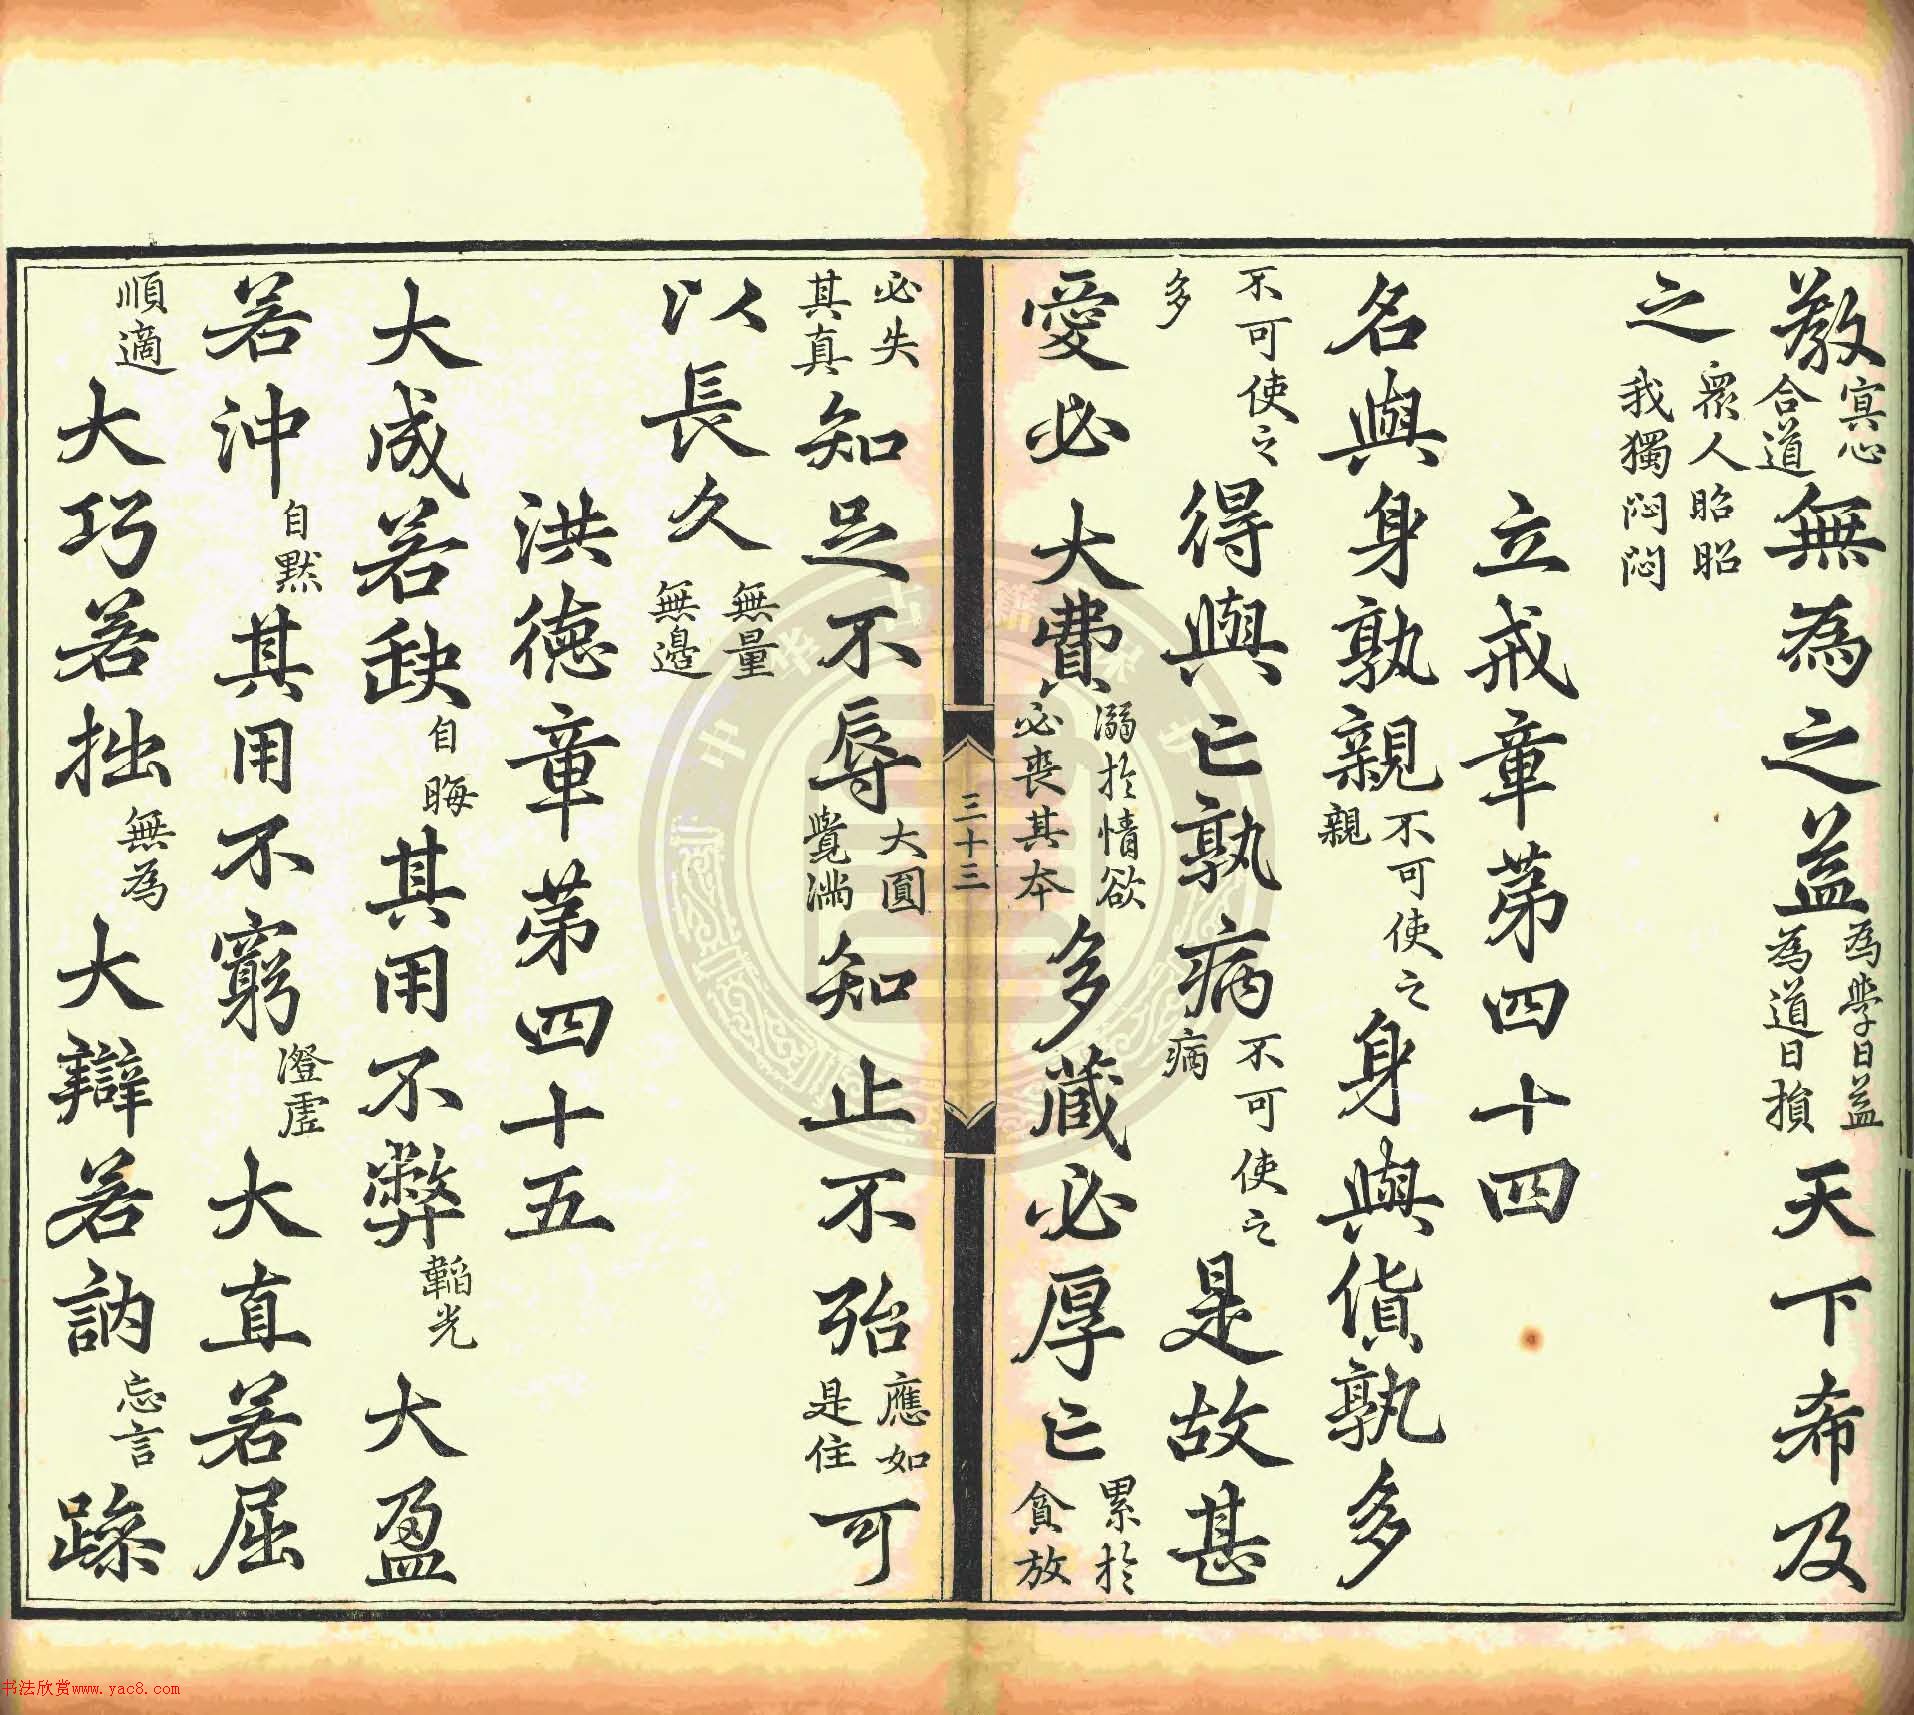 教冥心合道無為之益為學日益為道日損天下希及
之眾人昭昭我獨悶悶
立戒章第四十四
名與身孰親不可使之親身與貨孰多
不可使之多得與亡孰病不可使之病是故甚
愛必大費溺於情欲必喪其本多藏必厚亡累於貪放
三十三
必失其真知足不辱大圓覺滿知止不殆應如是住可
以長久無量無邊
洪德章第四十五
大成若缺自晦其用不弊韜光大盈
若沖自默其用不窮澄虛大直若屈
順適大巧若拙無為大辯若訥忘言躁
书法欣赏www.yac8.com